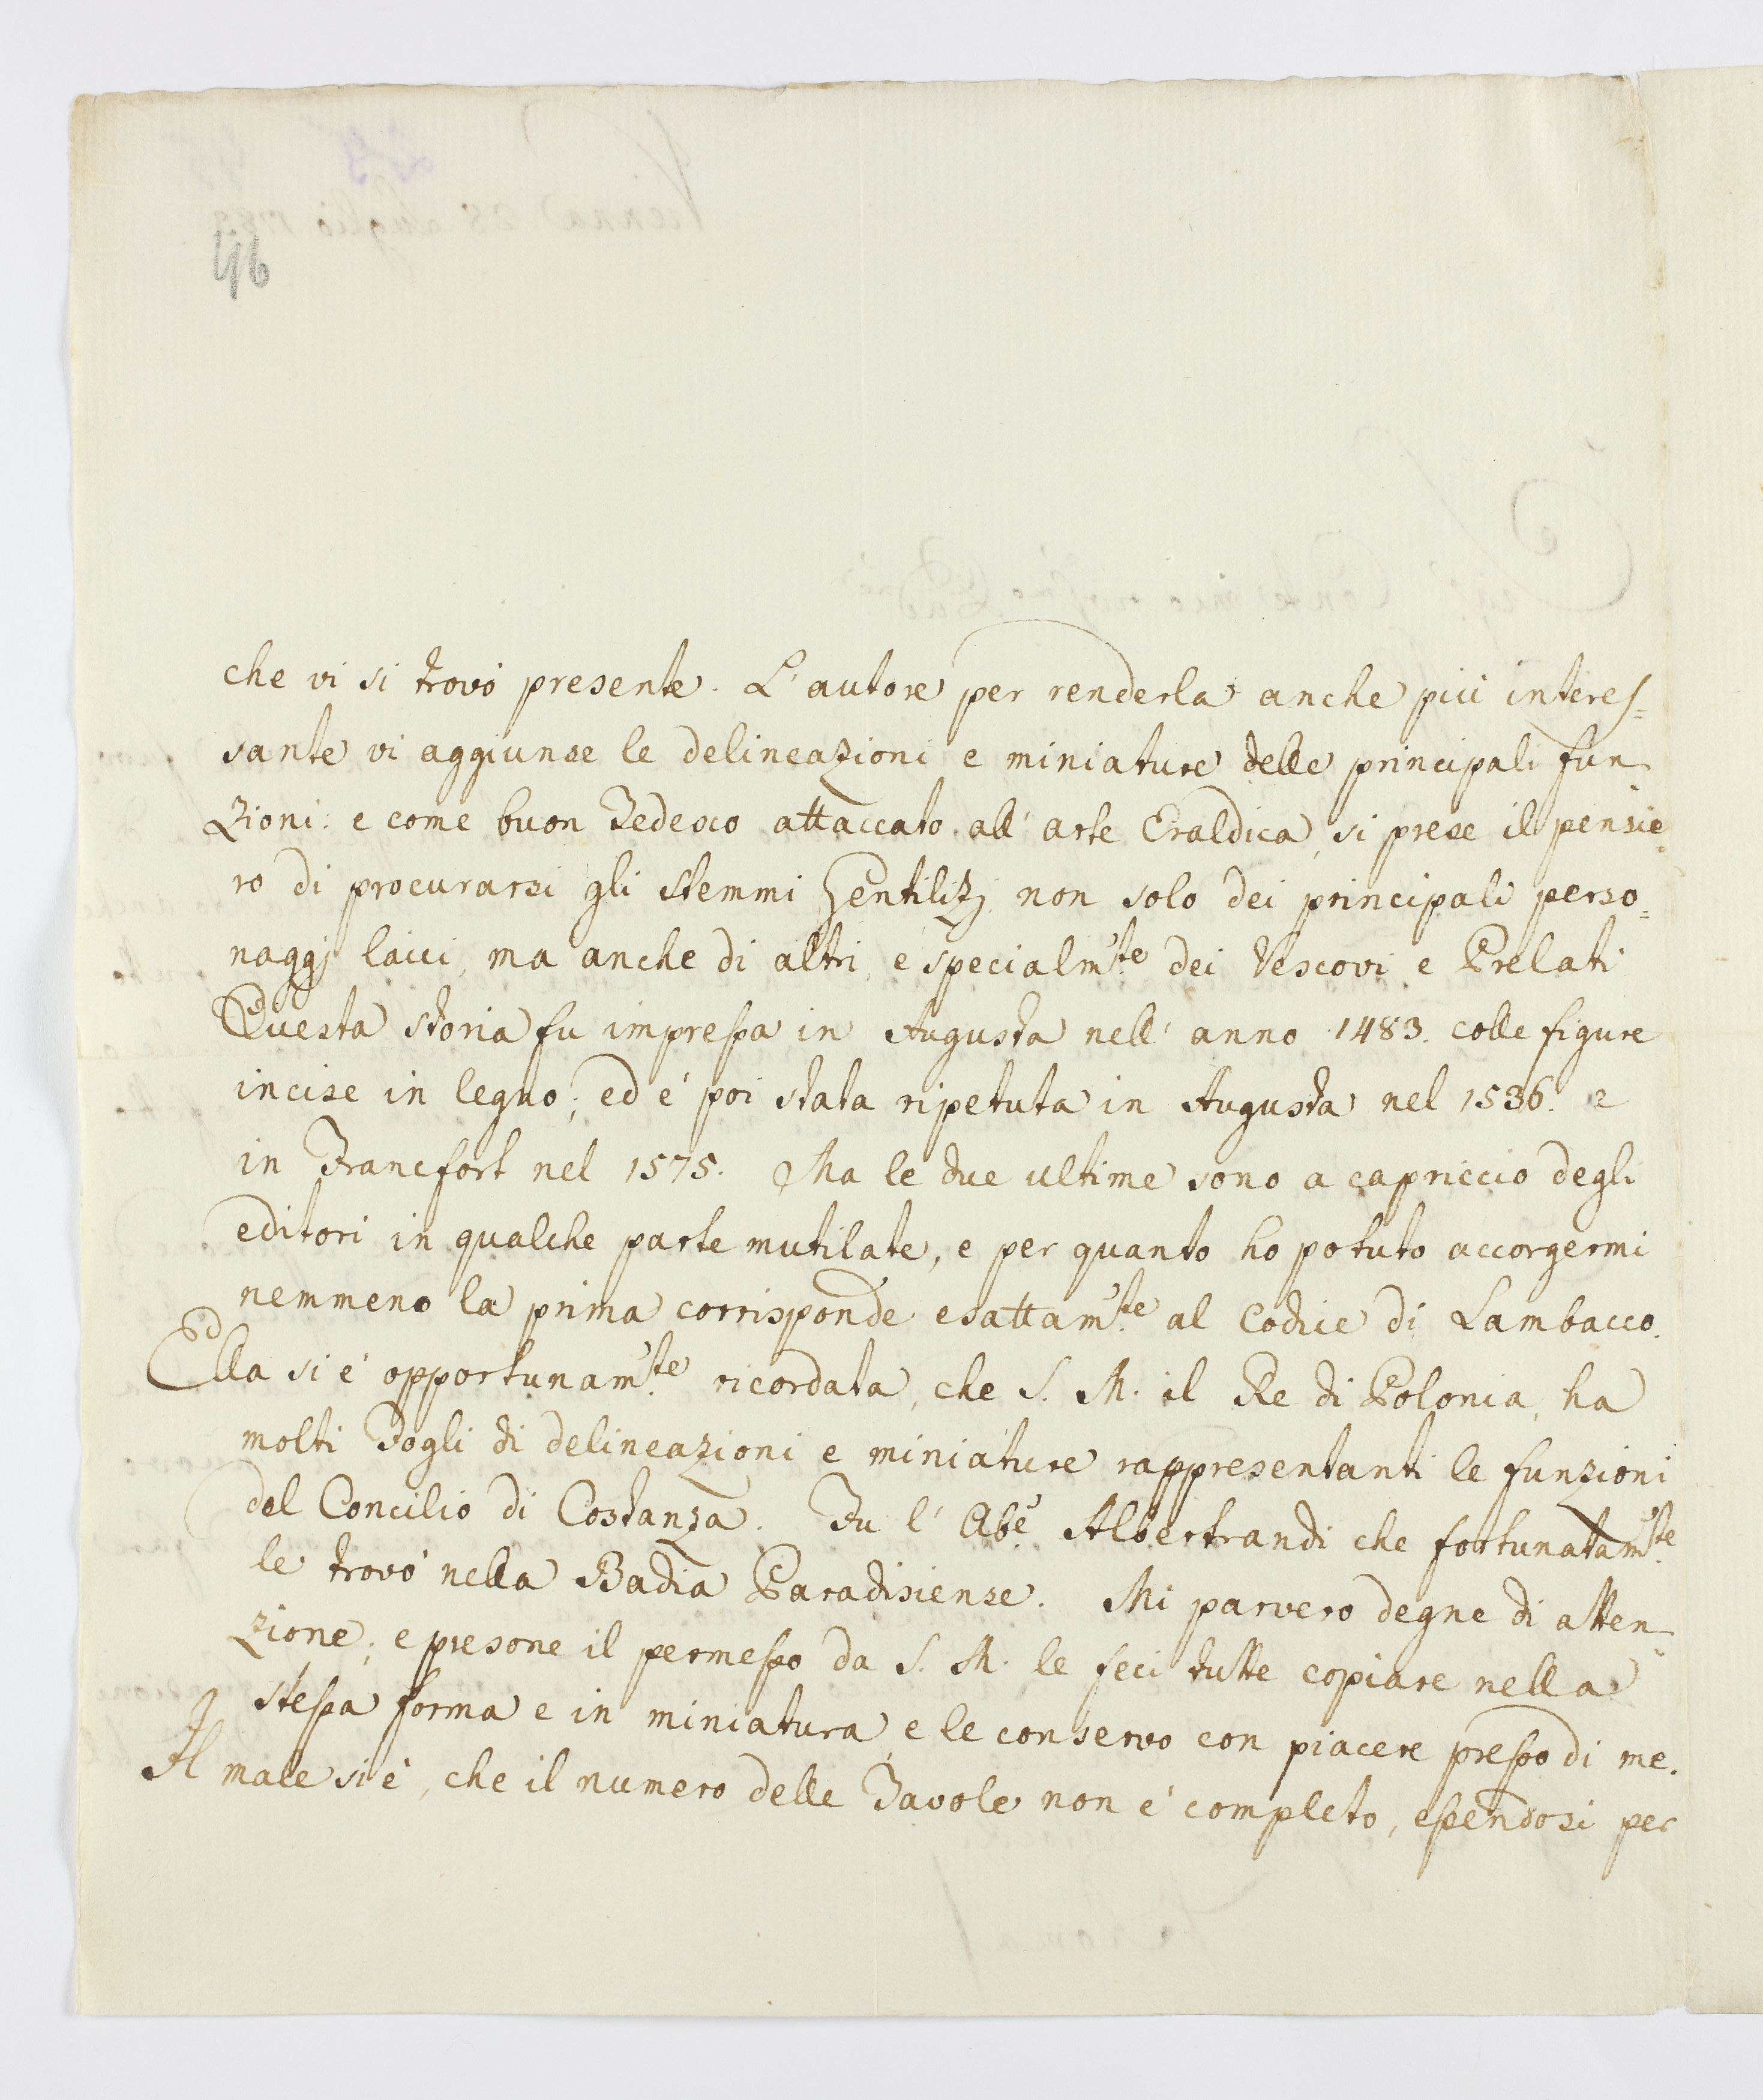 46
che vi si trovò presente. L'autore per renderla anche più interes=
sante vi aggiunse le delineazioni e miniature delle principali fun=
zioni: e come buon Tedesco attaccato all'arte Eraldica, si prese il pensie=
ro di procurarsi gli stemmi Gentilizj non solo dei principali perso=
naggj laici, ma anche di altri, e specialm.te dei Vescovi e Prelati
Questa storia fu impressa in Augusta nell'anno 1483. colle figure
incise in legno; ed è poi stata ripetuta in Augusta nel 1536. e
in Francfort nel 1575. Ma le due ultime sono a capriccio degli
editori in qualche parte mutilate, e per quanto ho potuto accorgermi
nemmeno la prima corrisponde esattam.te al Codice di Lambacco.
Ella si è opportunam.te ricordata, che S. M. il Re di Polonia, ha
molti Fogli di delineazioni e miniature rappresentanti le funzioni
del Concilio di Costanza. Fu l'Ab.e Albertrandi che fortunatam.te
le trovò nella Badia Paradisiense. Mi parvero degne di atten=
zione; e presone il permesso da S. M. le feci tutte copiare nella
stessa forma e in miniatura e le conservo con piacere presso di me.
Il male si è, che il numero delle Tavole non è completo, essendosi per